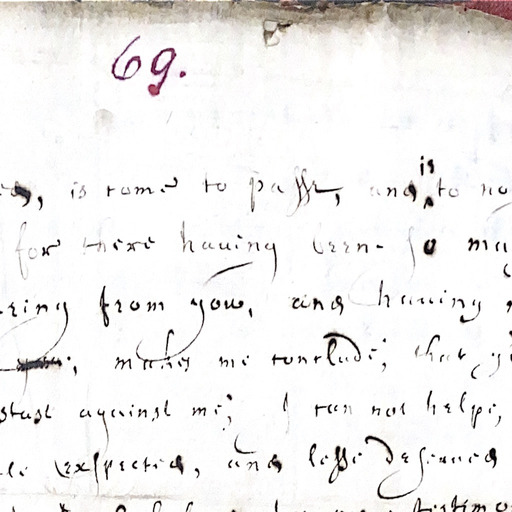 69.
is
is come to passe, and to no
for there having been so ma
ring from you, and having
makes me conclude; that yo
stast against me; I can not helpe,
le expected, and lesse deserved
testimo